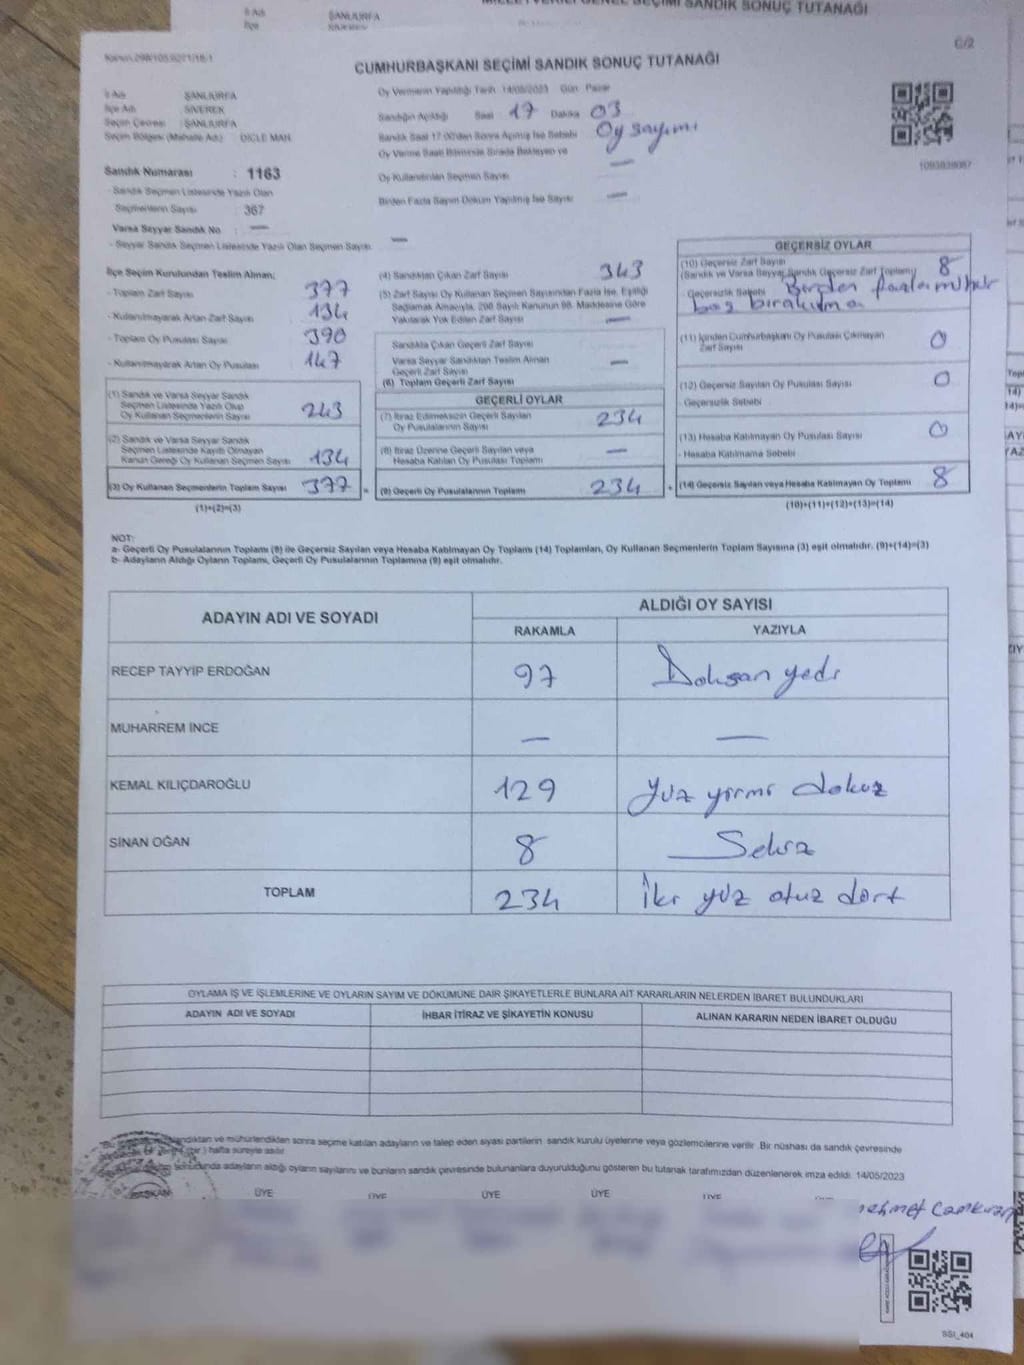 İl Adı ŞANLIURFA
İlçe
MİLLETVEKİLİ GENEL SEÇİMİ SANDIK SONUÇ TUTANAĞI
C/2
CUMHURBAŞKANI SEÇİMİ SANDIK SONUÇ TUTANAĞI
İl Adı : ŞANLIURFA
İlçe Adı : SİVEREK
Seçim Çevresi : ŞANLIURFA
Seçim Bölgesi (Mahalle Adı) : DİCLE MAH.
Sandık Numarası : 1163
- Sandık Seçmen Listesinde Yazılı Olan
Seçmenlerin Sayısı : 367
Varsa Seyyar Sandık No : —
- Seyyar Sandık Seçmen Listesinde Yazılı Olan Seçmen Sayısı —
Oy Vermenin Yapıldığı Tarih 14/05/2023 Gün Pazar
Sandığın Açıldığı Saat 17 Dakika 03
Sandık Saat 17:00'den Sonra Açılmış İse Sebebi Oy sayımı
Oy Verme Saati Bitiminde Sırada Bekleyen ve
Oy Kullandırılan Seçmen Sayısı —
Birden Fazla Sayım Döküm Yapılmış İse Sayısı —
1093838087
İlçe Seçim Kurulundan Teslim Alınan;
- Toplam Zarf Sayısı : 377
- Kullanılmayarak Artan Zarf Sayısı : 134
- Toplam Oy Pusulası Sayısı : 390
- Kullanılmayarak Artan Oy Pusulası : 147
(1) Sandık ve Varsa Seyyar Sandık
Seçmen Listesinde Yazılı Olup
Oy Kullanan Seçmenlerin Sayısı 243
(2) Sandık ve Varsa Seyyar Sandık
Seçmen Listesinde Kayıtlı Olmayan
Kanun Gereği Oy Kullanan Seçmen Sayısı 134
(3) Oy Kullanan Seçmenlerin Toplam Sayısı 377 =
(1)+(2)=(3)
(4) Sandıktan Çıkan Zarf Sayısı 343
(5) Zarf Sayısı Oy Kullanan Seçmen Sayısından Fazla İse, Eşitliği
Sağlamak Amacıyla, 298 Sayılı Kanunun 98. Maddesine Göre
Yakılarak Yok Edilen Zarf Sayısı —
Sandıkta Çıkan Geçerli Zarf Sayısı
Varsa Seyyar Sandıktan Teslim Alınan
Geçerli Zarf Sayısı —
(6) Toplam Geçerli Zarf Sayısı
GEÇERLİ OYLAR
(7) İtiraz Edilmeksizin Geçerli Sayılan
Oy Pusulalarının Sayısı 234
(8) İtiraz Üzerine Geçerli Sayılan veya
Hesaba Katılan Oy Pusulası Toplamı —
(9) Geçerli Oy Pusulalarının Toplamı 234 +
GEÇERSİZ OYLAR
(10) Geçersiz Zarf Sayısı
(Sandık ve Varsa Seyyar Sandık Geçersiz Zarf Toplamı) 8
- Geçersizlik Sebebi Birden fazla mühür
boş bırakılma
(11) İçinden Cumhurbaşkanı Oy Pusulası Çıkmayan
Zarf Sayısı 0
(12) Geçersiz Sayılan Oy Pusulası Sayısı 0
- Geçersizlik Sebebi
(13) Hesaba Katılmayan Oy Pusulası Sayısı 0
- Hesaba Katılmama Sebebi
(14) Geçersiz Sayılan veya Hesaba Katılmayan Oy Toplamı 8
(10)+(11)+(12)+(13)=(14)
NOT:
a- Geçerli Oy Pusulalarının Toplamı (9) ile Geçersiz Sayılan veya Hesaba Katılmayan Oy Toplamı (14) Toplamları, Oy Kullanan Seçmenlerin Toplam Sayısına (3) eşit olmalıdır. (9)+(14)=(3)
b- Adayların Aldığı Oyların Toplamı, Geçerli Oy Pusulalarının Toplamına (9) eşit olmalıdır.
ADAYIN ADI VE SOYADI ALDIĞI OY SAYISI
RAKAMLA YAZIYLA
RECEP TAYYİP ERDOĞAN 97 Doksan yedi
MUHARREM İNCE — —
KEMAL KILIÇDAROĞLU 129 Yüz yirmi dokuz
SİNAN OĞAN 8 Sekiz
TOPLAM 234 İki yüz otuz dört
OYLAMA İŞ VE İŞLEMLERİNE VE OYLARIN SAYIM VE DÖKÜMÜNE DAİR ŞİKAYETLERLE BUNLARA AİT KARARLARIN NELERDEN İBARET BULUNDUKLARI
ADAYIN ADI VE SOYADI İHBAR İTİRAZ VE ŞİKAYETİN KONUSU ALINAN KARARIN NEDEN İBARET OLDUĞU
ve mühürlendikten sonra seçime katılan adayların ve talep eden siyasi partilerin sandık kurulu üyelerine veya gözlemcilerine verilir. Bir nüshası da sandık çevresinde
(bir) hafta süreyle asılır
sonucunda adayların aldığı oyların sayılarını ve bunların sandık çevresinde bulunanlara duyurulduğunu gösteren bu tutanak tarafımızdan düzenlenerek imza edildi. 14/05/2023
BAŞKAN ÜYE ÜYE ÜYE ÜYE ÜYE
SSİ_404